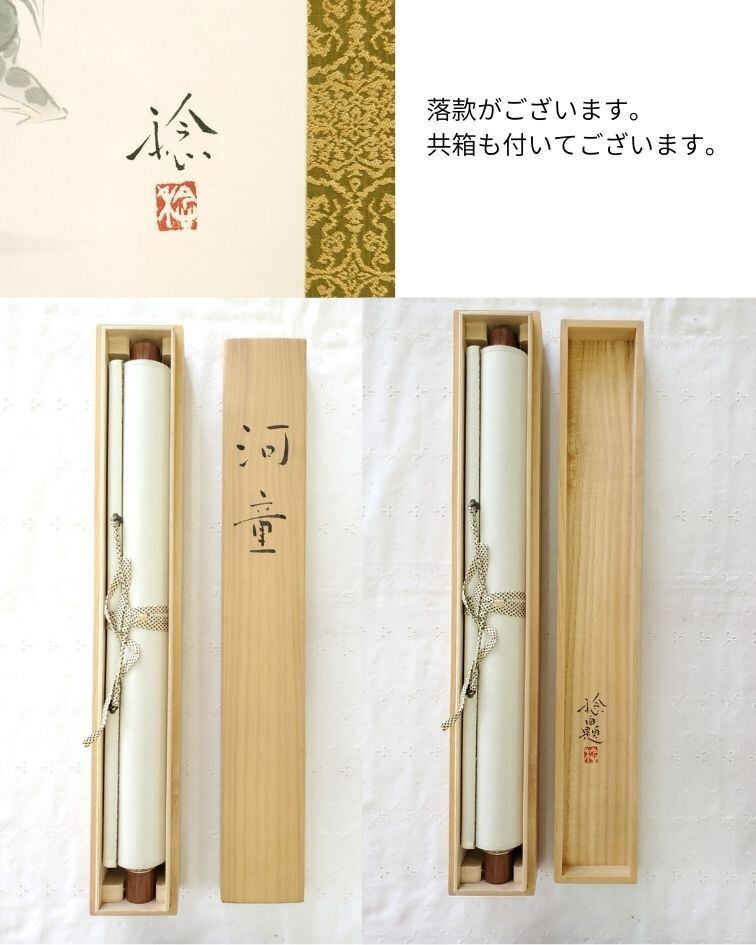 落款がございます。
共箱も付いてございます。
稔
河童
稔自題